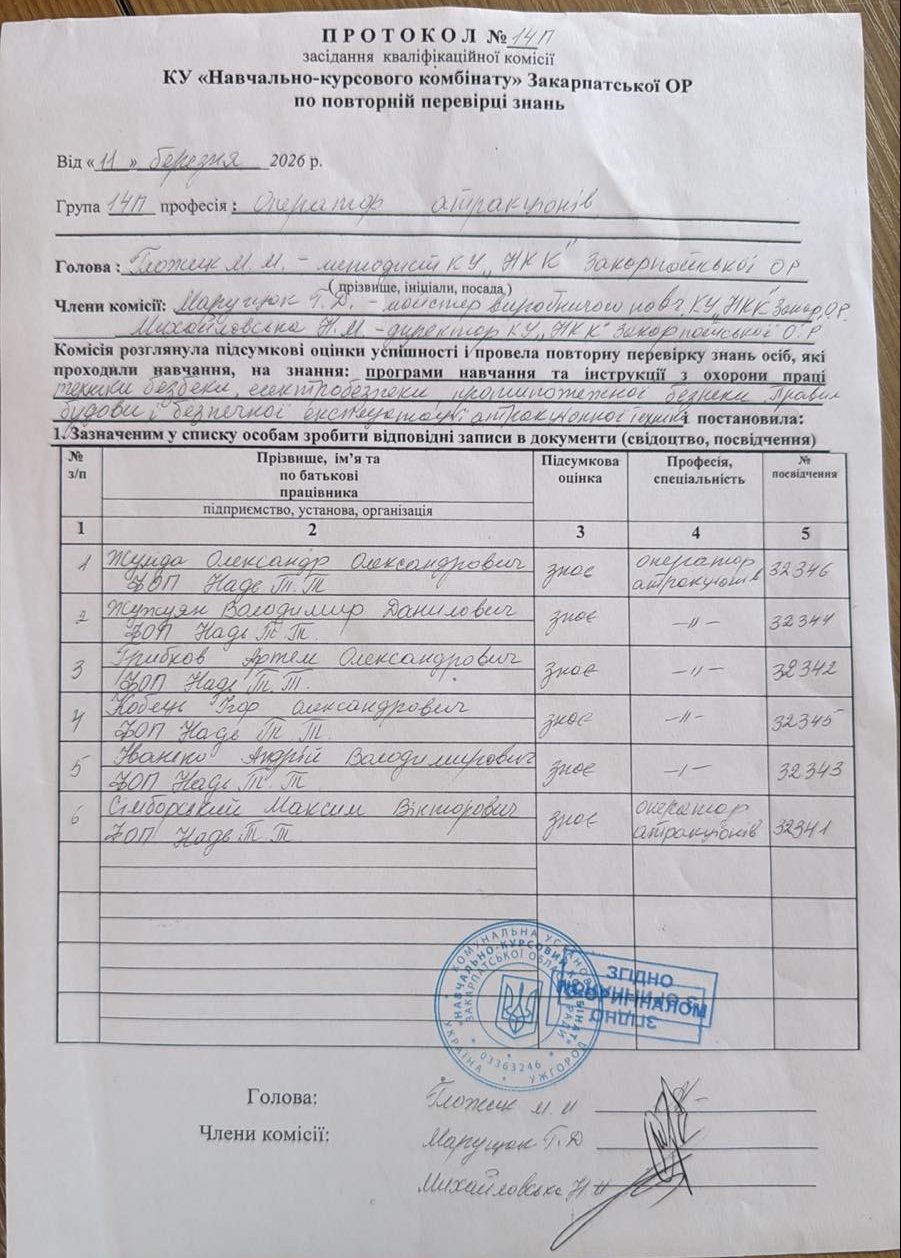 ПРОТОКОЛ № 14П
засідання кваліфікаційної комісії
КУ «Навчально-курсового комбінату» Закарпатської ОР
по повторній перевірці знань
Від « 11 » березня 2026 р.
Група 14П професія : Оператор атракціонів
Голова : Гложик М.М. – методист КУ „НКК" Закарпатської ОР
( прізвище, ініціали, посада )
Члени комісії: Марущюк Г.Д. – майстер виробничого навч КУ „НКК" Закар. ОР
Михайловська Н.М – директор КУ „НКК" Закарпатської О.Р
Комісія розглянула підсумкові оцінки успішності і провела повторну перевірку знань осіб, які
проходили навчання, на знання: програми навчання та інструкції з охорони праці
техніки безпеки, електробезпеки протипожежної безпеки Правил
будови і безпечної експлуатації атракціонної техніки постановила:
1. Зазначеним у списку особам зробити відповідні записи в документи (свідоцтво, посвідчення)
№ з/п Прізвище, ім’я та по батькові працівника Підсумкова оцінка Професія, спеціальність № посвідчення
підприємство, установа, організація
1 2 3 4 5
1 Жупда Олександр Олександрович знає оператор атракціонів 32346
ФОП Надь Т.Т
2 Жужуян Володимир Данилович знає –//– 32344
ФОП Надь Т.Т.
3 Грибков Артем Олександрович знає –//– 32342
ФОП Надь Т.Т.
4 Кобець Ігор Олександрович знає –//– 32345
ФОП Надь Т.Т.
5 Іваненко Андрій Володимирович знає –/– 32343
ФОП Надь Т.Т
6 Сімборський Максим Вікторович знає оператор атракціонів 32341
ФОП Надь Т.Т
УКРАЇНА * КОМУНАЛЬНА УСТАНОВА * УЖГОРОД
"НАВЧАЛЬНО-КУРСОВИЙ КОМБІНАТ"
ЗАКАРПАТСЬКОЇ ОБЛАСНОЇ РАДИ
* 03363246 *
ЗГІДНО
З ОРИГІНАЛОМ
ЗГІДНО
Голова: Гложик М.М
Члени комісії: Марущюк Г.Д
Михайловська Н М